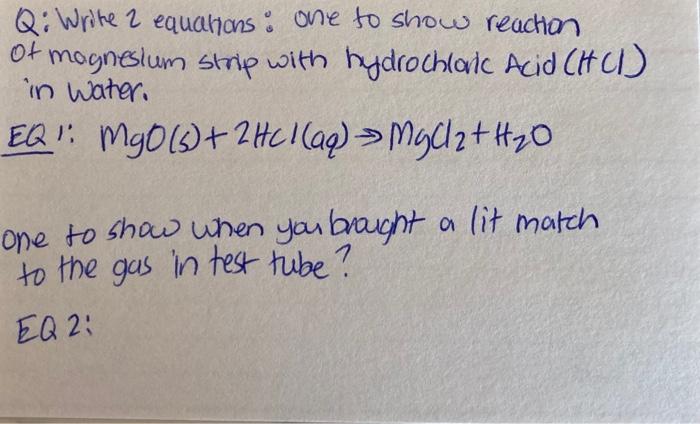 Q: Write 2 equations: one to show reaction
of magnesium strip with hydrochloric Acid (HCl)
in water.
EQ 1: MgO(s) + 2HCl(aq) → MgCl₂ + H₂O
one to show when you brought a lit match
to the gas in test tube?
EQ 2: